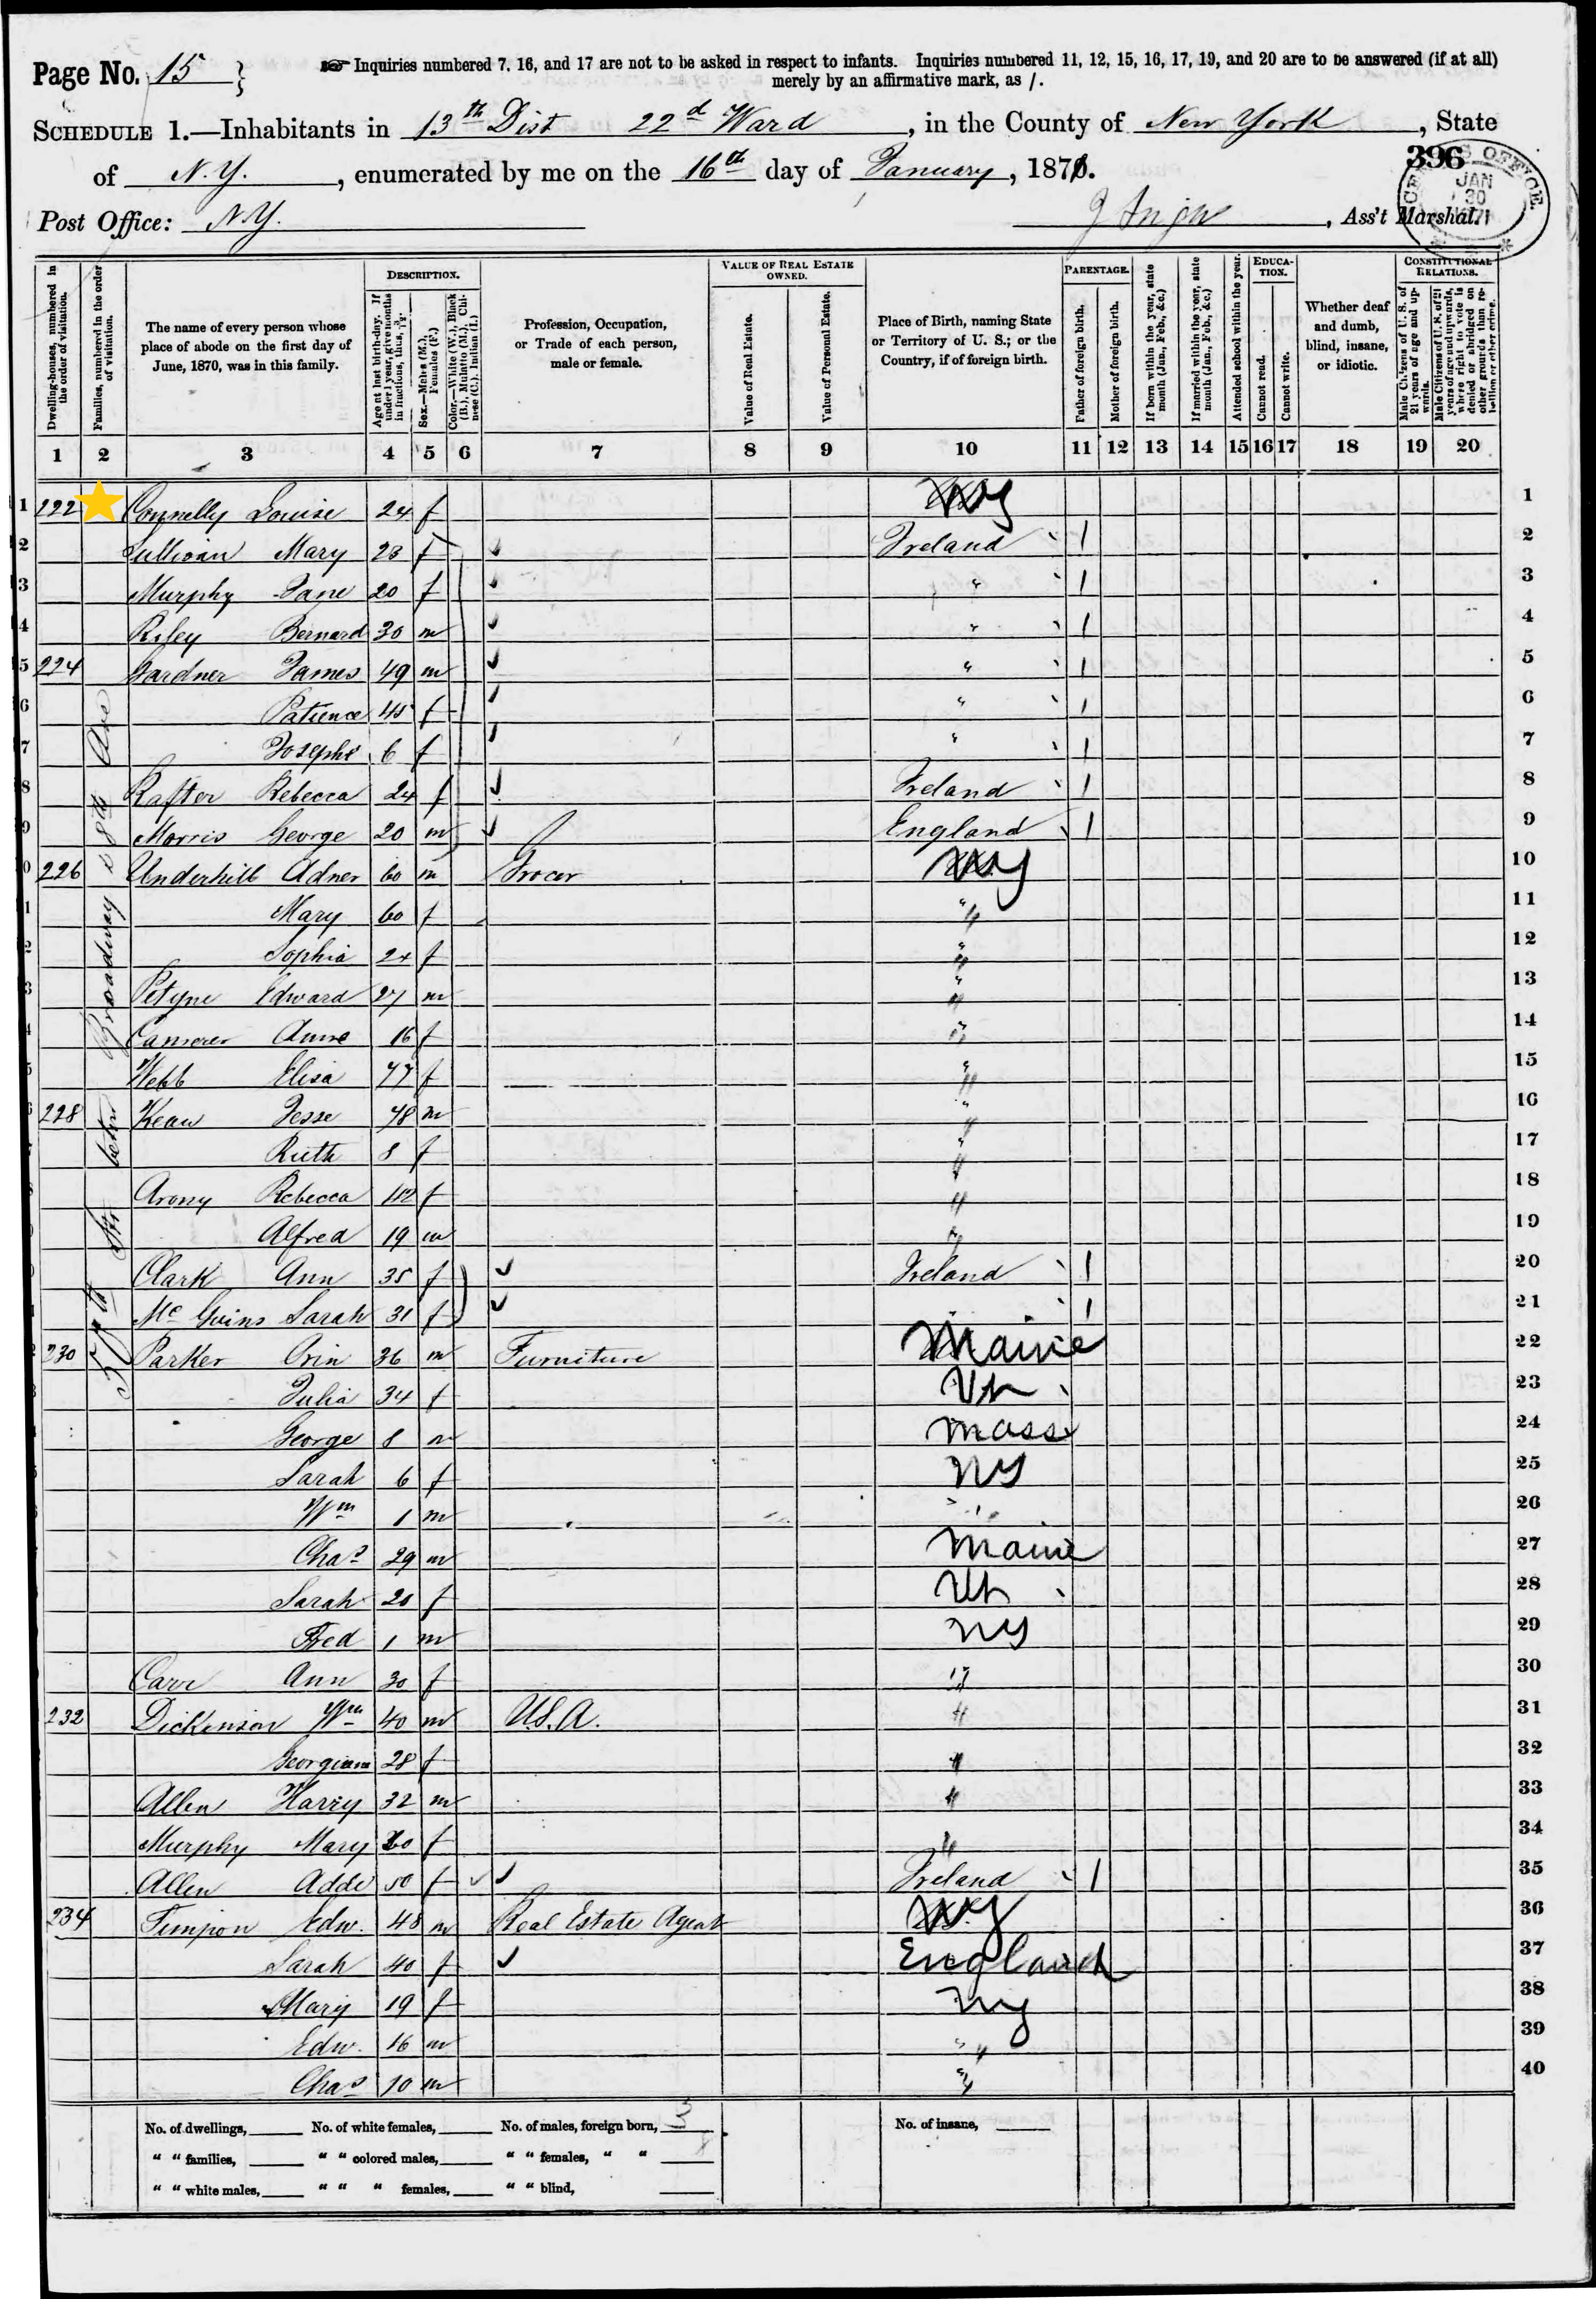 Page No. 15 }
Inquiries numbered 7, 16, and 17 are not to be asked in respect to infants. Inquiries numbered 11, 12, 15, 16, 17, 19, and 20 are to be answered (if at all)
merely by an affirmative mark, as /.
SCHEDULE 1.—Inhabitants in 13th Dist 22d Ward, in the County of New York, State
of N.Y., enumerated by me on the 16th day of January, 1870.
396
Post Office: N.Y. , Ass't Marshal.
JAN 30
Dwelling-houses, numbered in the order of visitation.
Families, numbered in the order of visitation.
The name of every person whose place of abode on the first day of June, 1870, was in this family.
DESCRIPTION.
Age at last birth-day. If under 1 year, give months in fractions, thus, 3/12
Sex.—Males (M.), Females (F.)
Color.—White (W.), Black (B.), Mulatto (M.), Chinese (C.), Indian (I.)
Profession, Occupation, or Trade of each person, male or female.
VALUE OF REAL ESTATE OWNED.
Value of Real Estate.
Value of Personal Estate.
Place of Birth, naming State or Territory of U. S.; or the Country, if of foreign birth.
PARENTAGE.
Father of foreign birth.
Mother of foreign birth.
If born within the year, state month (Jan., Feb., &c.)
If married within the year, state month (Jan., Feb., &c.)
EDUCATION.
Attended school within the year.
Cannot read.
Cannot write.
Whether deaf and dumb, blind, insane, or idiotic.
CONSTITUTIONAL RELATIONS.
Male Citizens of U. S. of 21 years of age and upwards.
Male Citizens of U. S. of 21 years of age and upwards, where right to vote is denied or abridged on other grounds than rebellion or other crime.
1 2 3 4 5 6 7 8 9 10 11 12 13 14 15 16 17 18 19 20
57th Str betw Broadway & 8th Ave
1 222 Connelly Louise 24 f NY 1
2 Sullivan Mary 23 f Ireland / 2
3 Murphy Jane 20 f " / 3
4 Riley Bernard 30 m " / 4
5 224 Gardner James 49 m " / 5
6 Patience 45 f " / 6
7 Josephe 6 f " / 7
8 Rafter Rebecca 24 f Ireland / 8
9 Morris George 20 m England / 9
226 Underhill Adner 60 m Grocer NY 10
Mary 60 f " 11
Sophia 24 f " 12
Edward 27 m " 13
Anne 16 f " 14
Webb Elisa 77 f " 15
228 Kean Jesse 78 m " 16
Ruth 8 f " 17
Arony Rebecca f " 18
Alfred 19 m " 19
Clark Ann 35 f Ireland / 20
Mc Guins Sarah 31 f " / 21
230 Parker Orin 36 m Furniture Maine 22
Julia 34 f Vt 23
George 8 m Mass 24
Sarah 6 f NY 25
Wm 1 m " 26
Chas 29 m Maine 27
Sarah 20 f Vt 28
Fred 1 m NY 29
Carr Ann 30 f " 30
232 Dickinson Wm 40 m U.S.A. " 31
Georgiana 28 f " 32
Allen Harry 32 m " 33
Murphy Mary f " 34
Allen Adde 50 f Ireland / 35
234 Timpon Edw. 48 m Real Estate Agent NY 36
Sarah 40 f England 37
Mary 19 f NY 38
Edw. 16 m " 39
Chas 10 m " 40
No. of dwellings, No. of white females, No. of males, foreign born, 3 No. of insane,
" " families, " " colored males, " " females, " "
" " white males, " " " females, " " blind,